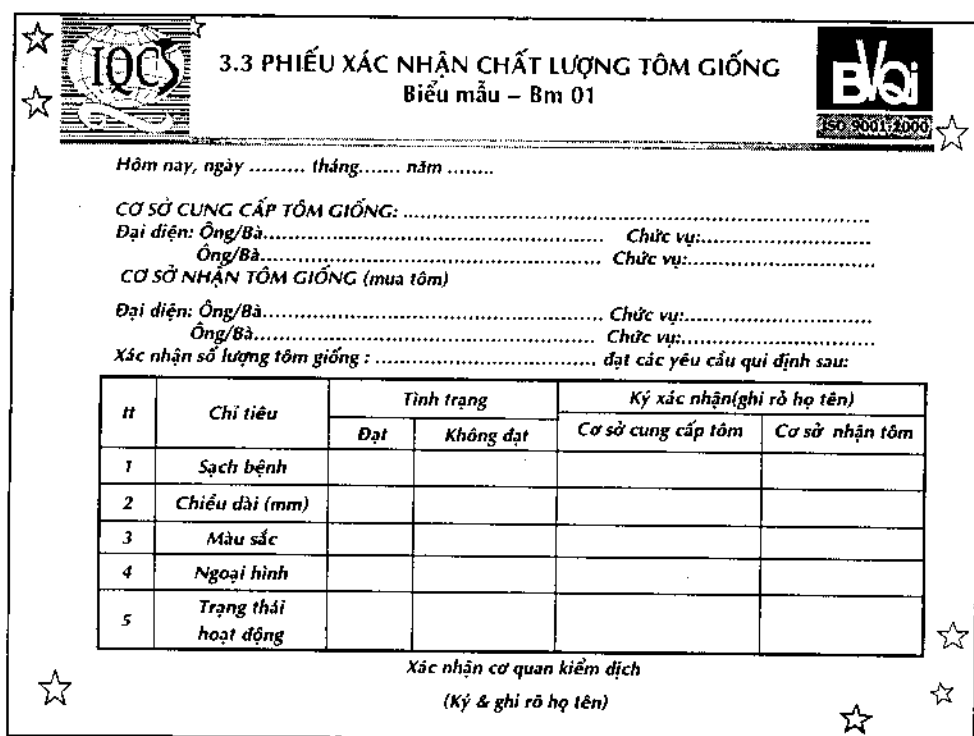 IQCS
3.3 PHIẾU XÁC NHẬN CHẤT LƯỢNG TÔM GIỐNG
Biểu mẫu – Bm 01
BVQi
ISO 9001:2000
Hôm nay, ngày ......... tháng....... năm ........
CƠ SỞ CUNG CẤP TÔM GIỐNG: ..........................................................................
Đại diện: Ông/Bà...................................................... Chức vụ:...........................
Ông/Bà...................................................... Chức vụ:.............................
CƠ SỞ NHẬN TÔM GIỐNG (mua tôm)
Đại diện: Ông/Bà...................................................... Chức vụ:..............................
Ông/Bà...................................................... Chức vụ:...............................
Xác nhận số lượng tôm giống : ................................... đạt các yêu cầu qui định sau:
tt Chỉ tiêu Tình trạng Ký xác nhận(ghi rỏ họ tên)
Đạt Không đạt Cơ sở cung cấp tôm Cơ sở nhận tôm
1 Sạch bệnh
2 Chiều dài (mm)
3 Màu sắc
4 Ngoại hình
5 Trạng thái
hoạt động
Xác nhận cơ quan kiểm dịch
(Ký & ghi rõ họ tên)